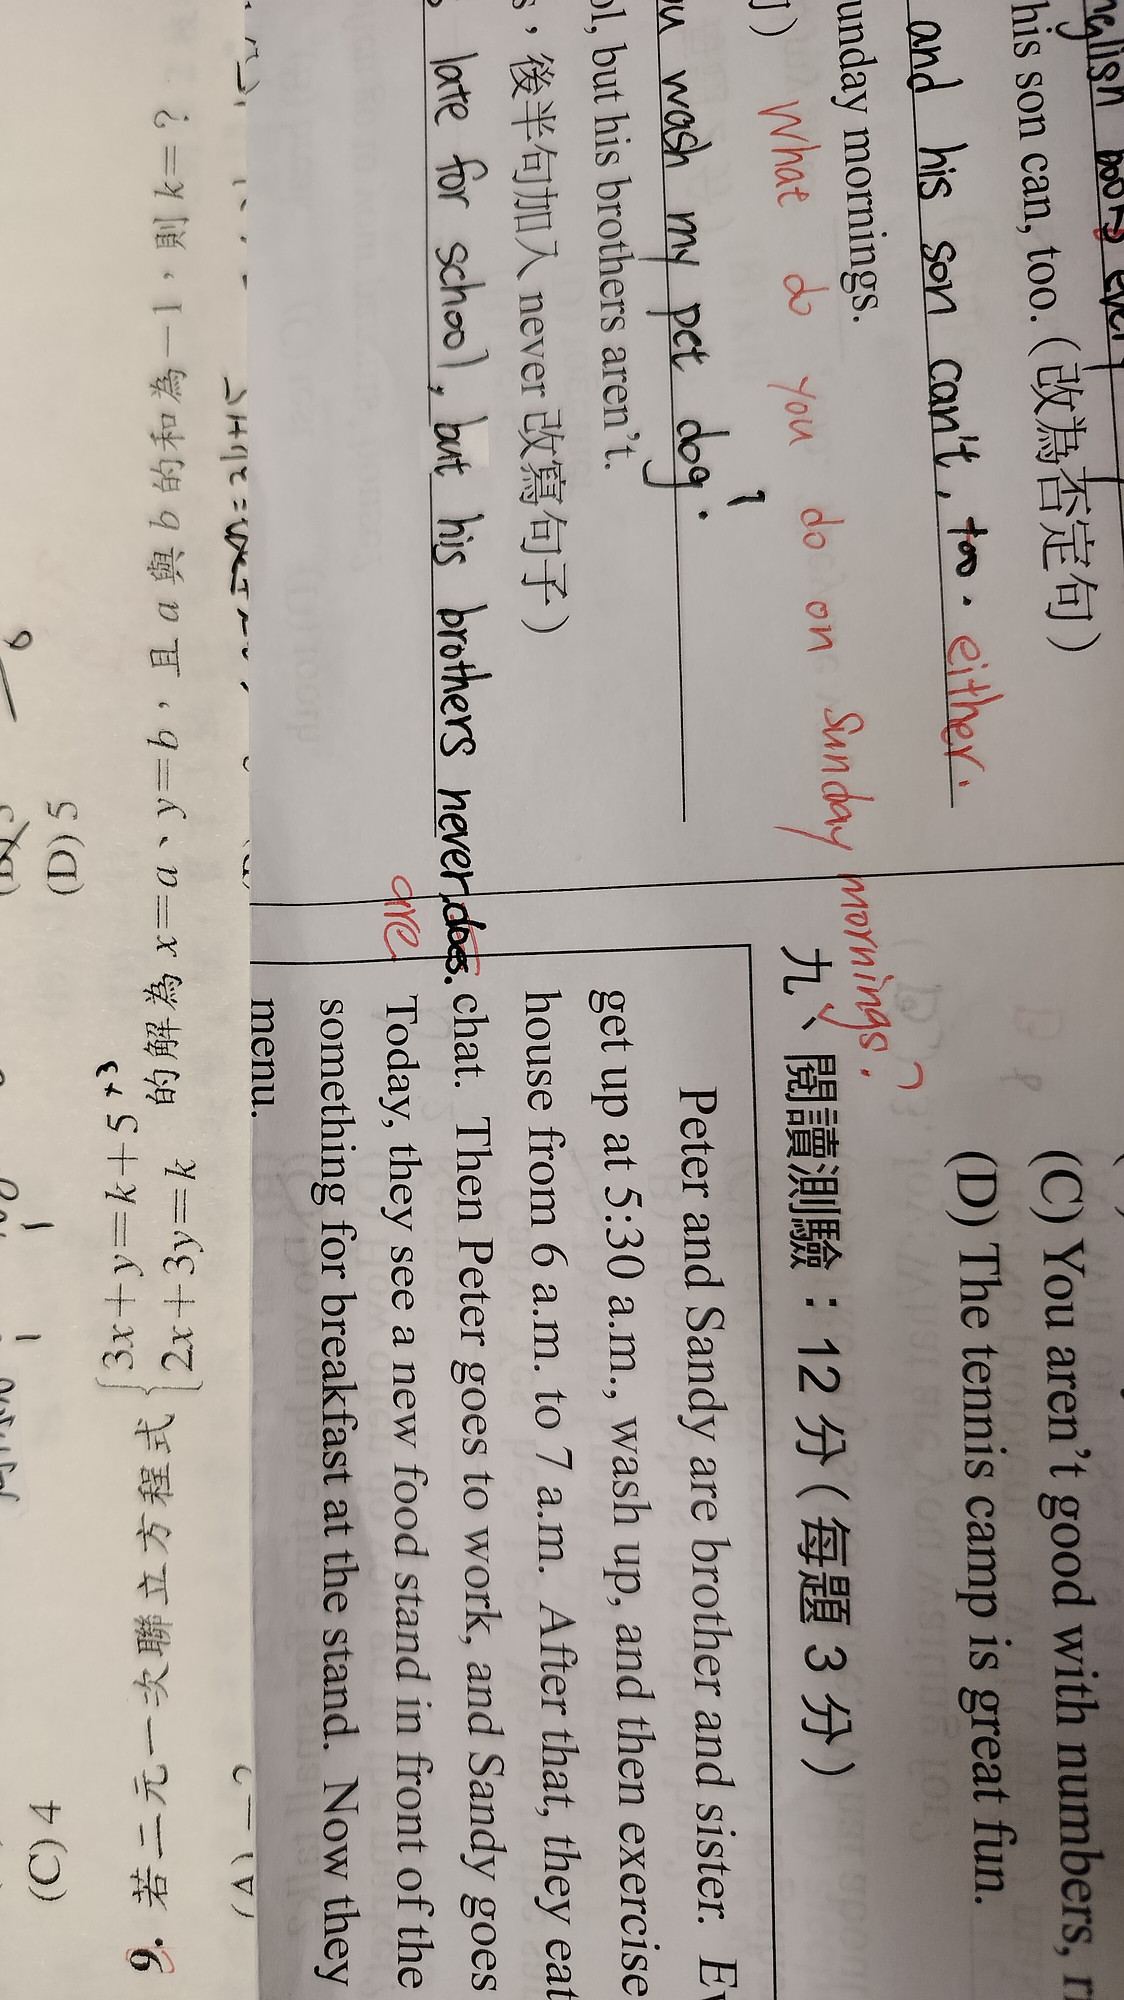 English books every
his son can, too. (改為否定句)
and his son can't, too. either.
unday mornings.
What do you do on Sunday mornings?
u wash my pet dog.
ol, but his brothers aren't.
,後半句加入 never 改寫句子)
late for school, but his brothers never does.
are
(C) You aren't good with numbers,
(D) The tennis camp is great fun.
九、閱讀測驗:12 分(每題 3 分)
Peter and Sandy are brother and sister.
get up at 5:30 a.m., wash up, and then exercise
house from 6 a.m. to 7 a.m. After that, they eat
chat. Then Peter goes to work, and Sandy goes
Today, they see a new food stand in front of the
something for breakfast at the stand. Now they
menu.
(C) 4
(D) 5
9. 若二元一次聯立方程式 {3x+y=k+5
2x+3y=k 的解為 x=a、y=b,且 a 與 b 的和為 −1,則 k=?